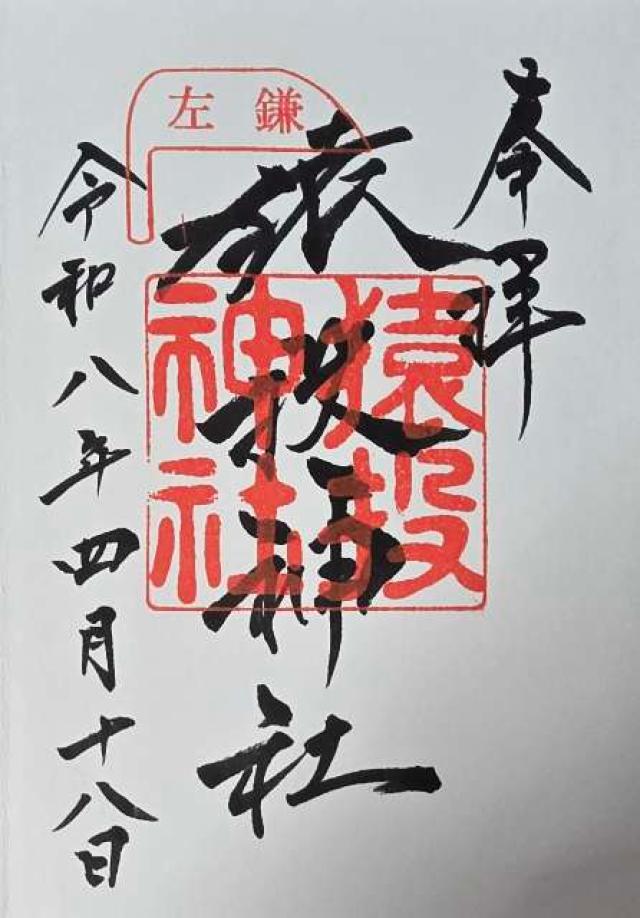 奉拝
猿投神社
左鎌
猿投
神社
令和八年四月十八日